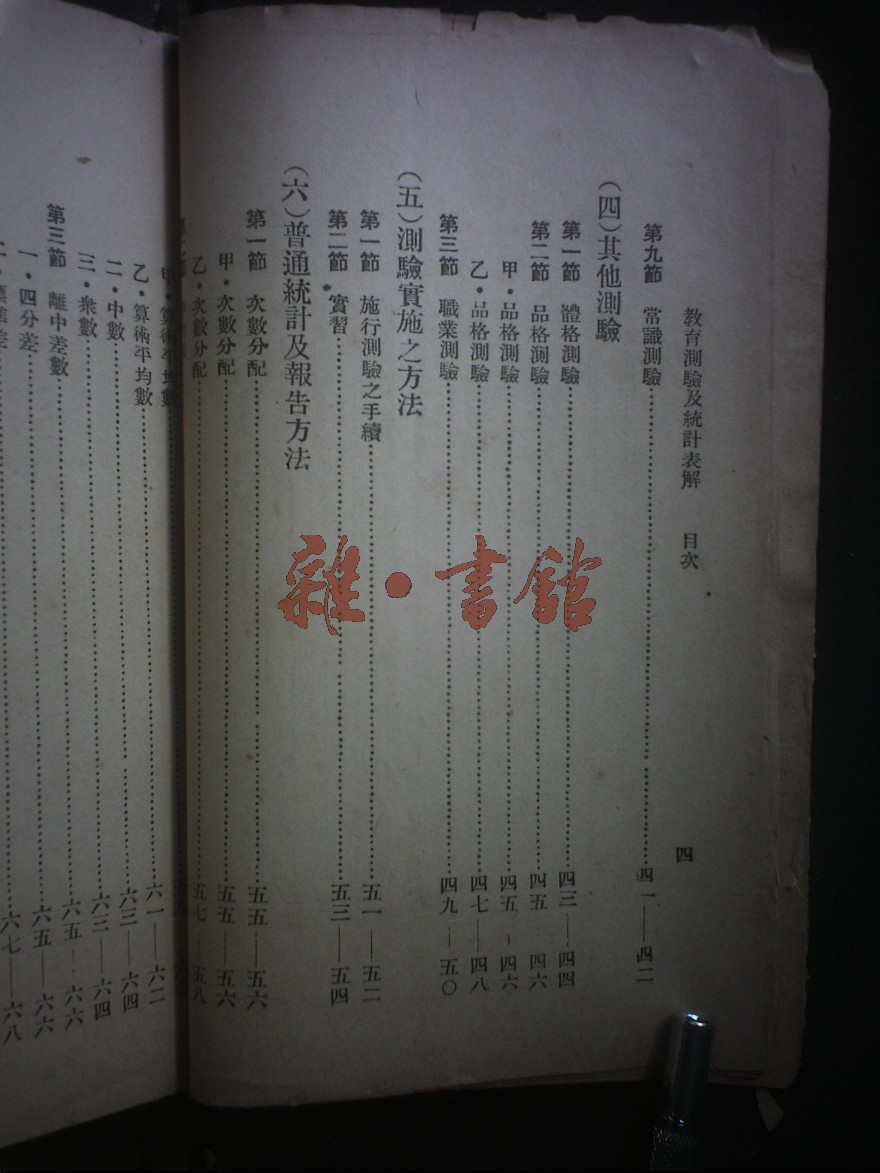 教育測驗及統計表解 目次 四
第九節 常識測驗……四一—四二
(四)其他測驗
第一節 體格測驗……四三—四四
第二節 品格測驗……四五—四六
甲·品格測驗……四五—四六
乙·品格測驗……四七—四八
第三節 職業測驗……四九—五〇
(五)測驗實施之方法
第一節 施行測驗之手續……五一—五二
第二節 實習……五三—五四
(六)普通統計及報告方法
第一節 次數分配……五五—五六
甲·次數分配……五五—五六
乙·次數分配……五七—五八
甲·算術平均數……六一—六二
乙·算術平均數……六一—六二
二·中數……六三—六四
三·衆數……六三—六四
第三節 離中差數……六五—六六
一·四分差……六五—六六
二·標準差……六七—六八
雜·書館